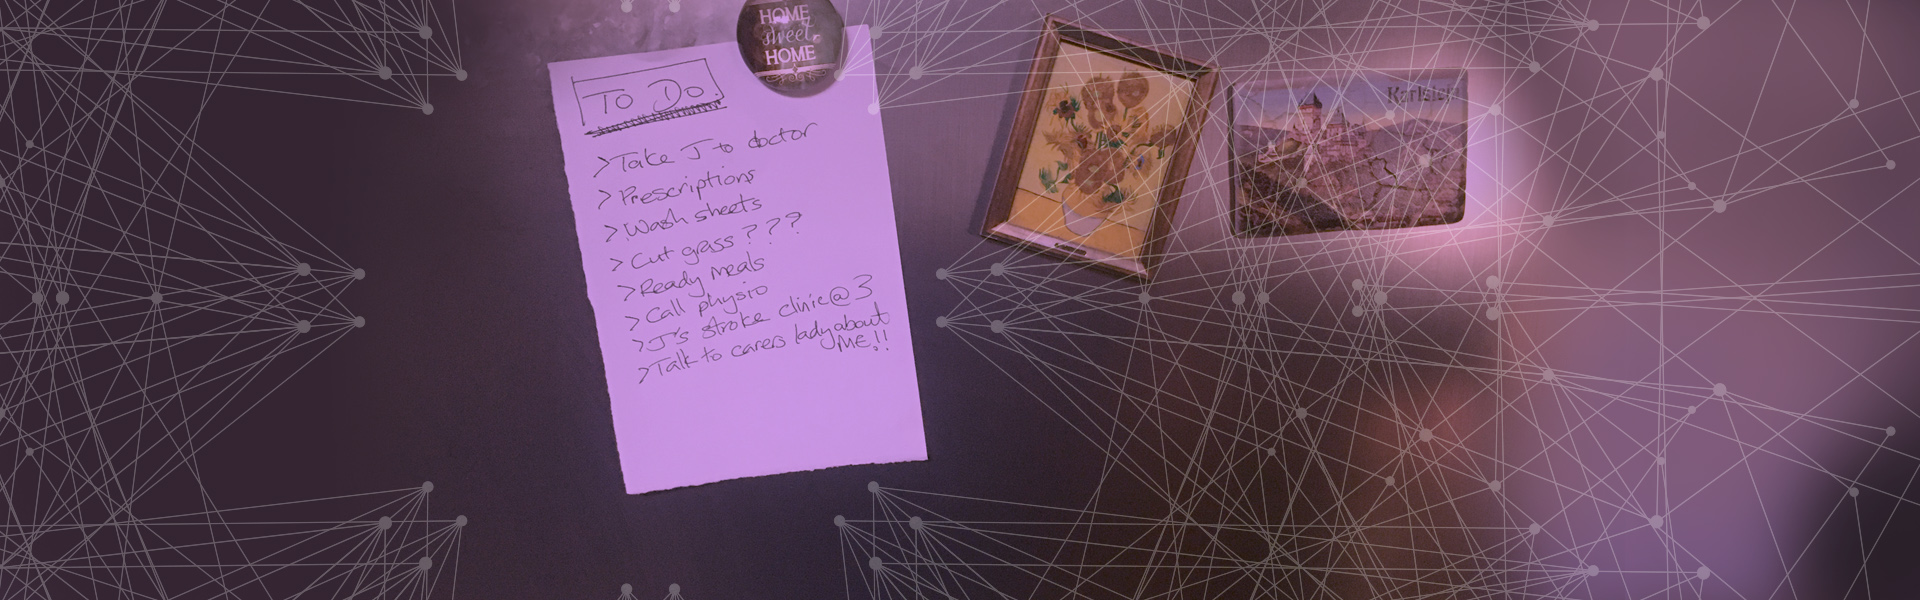 HOME
sweet
HOME
To Do
>Take J to doctor
>Prescriptions
>Wash sheets
>Cut grass???
>Ready meals
>Call physio
>J's stroke clinic@3
>Talk to carers lady about
ME!!
Karlstejn